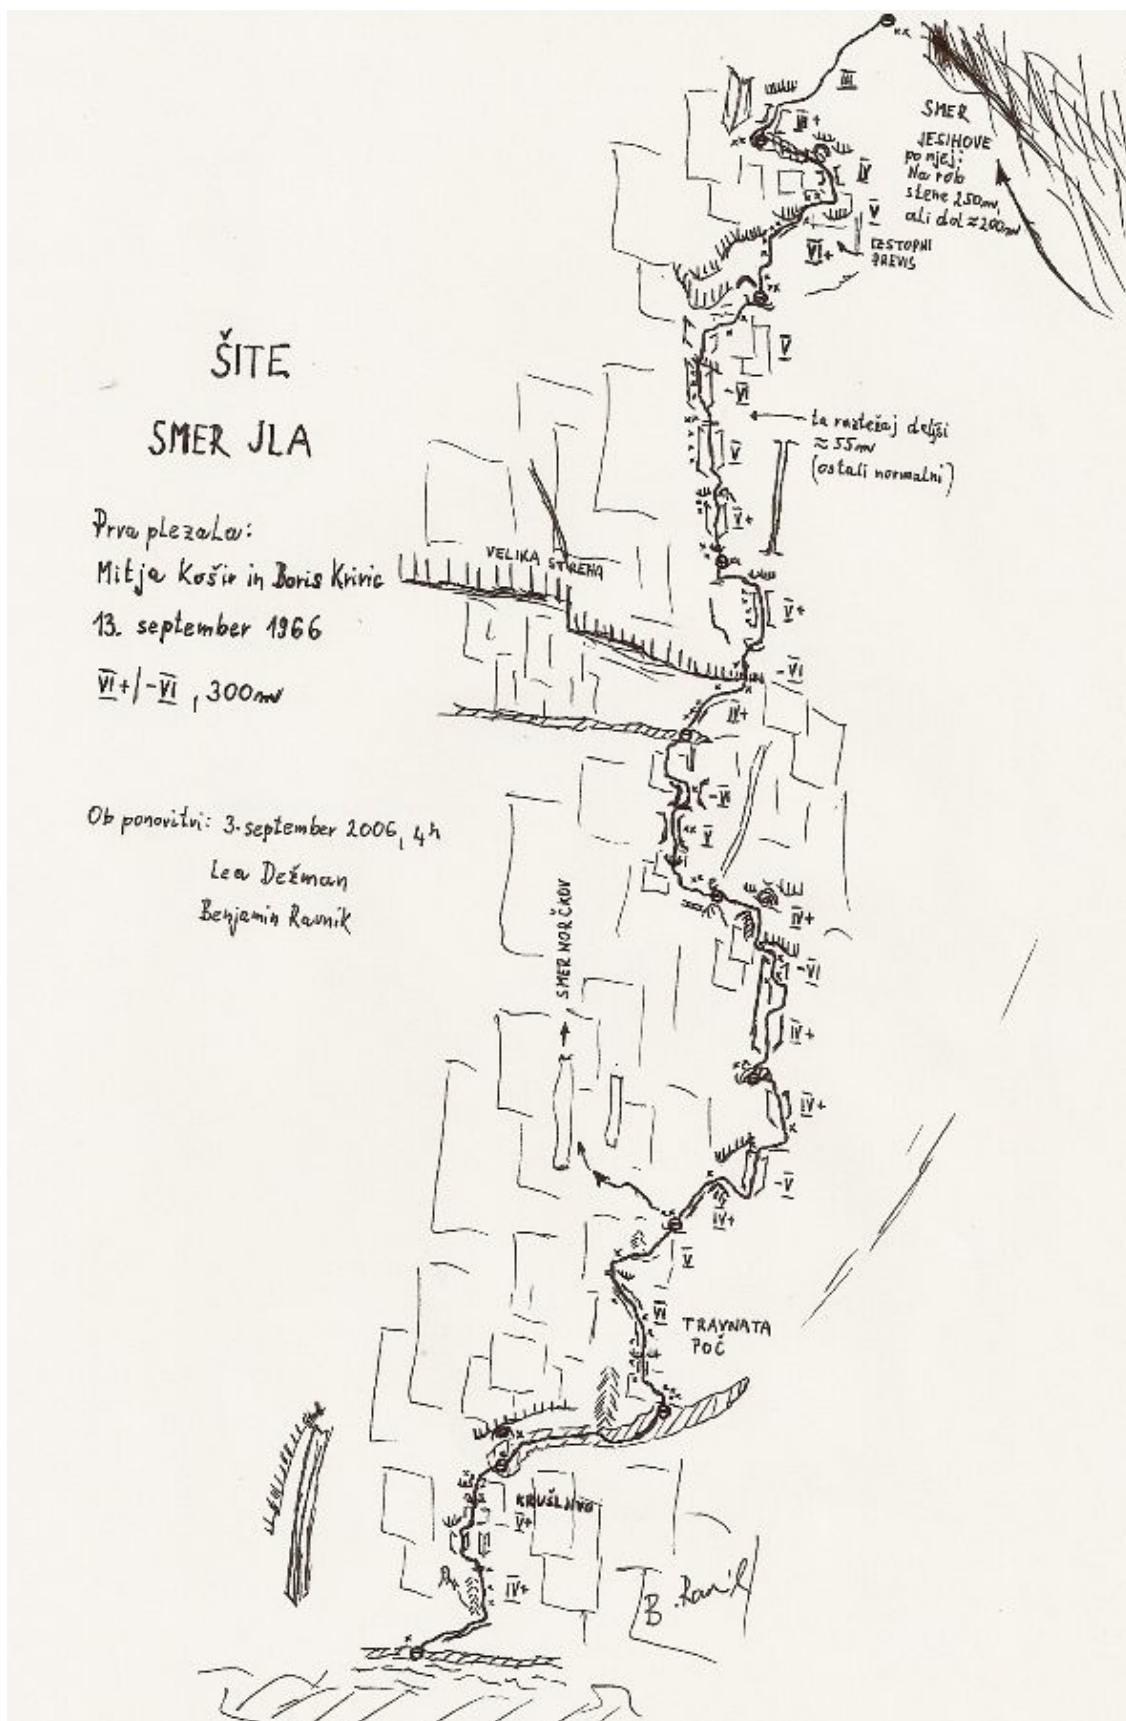 ŠITE
SMER JLA
Prva plezala:
Mitja Košir in Boris Krivic
13. september 1966
VI+/-VI, 300m
Ob ponovitvi: 3. september 2006, 4h
Lea Dežman
Benjamin Ravnik
III
III+
SMER
JESIHOVE
po njej:
Na rob
stene 250m,
ali dol ≈200m
IV
V
VI+
IZSTOPNI
PREVIS
V
-VI
ta raztežaj daljši
≈55m
(ostali normalni)
V
V+
VELIKA STREHA
V+
-VI
IV+
-VI
V
IV+
SMER NORČKOV
-VI
IV+
IV+
-V
IV+
V
VI
TRAVNATA
POČ
KRUŠLJIVO
V+
IV+
B. Ravnik